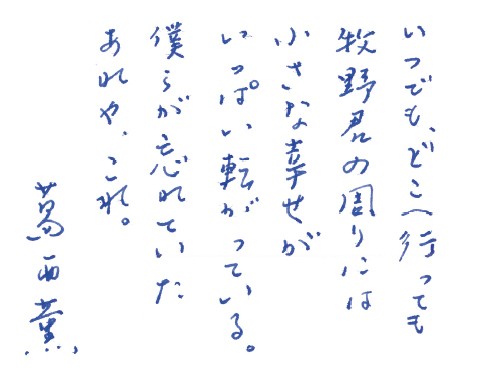 いつでも、どこへ行っても
牧野君の周りには
小さな幸せが
いっぱい転がっている。
僕らが忘れていた
あれや、これ。
葛西薫